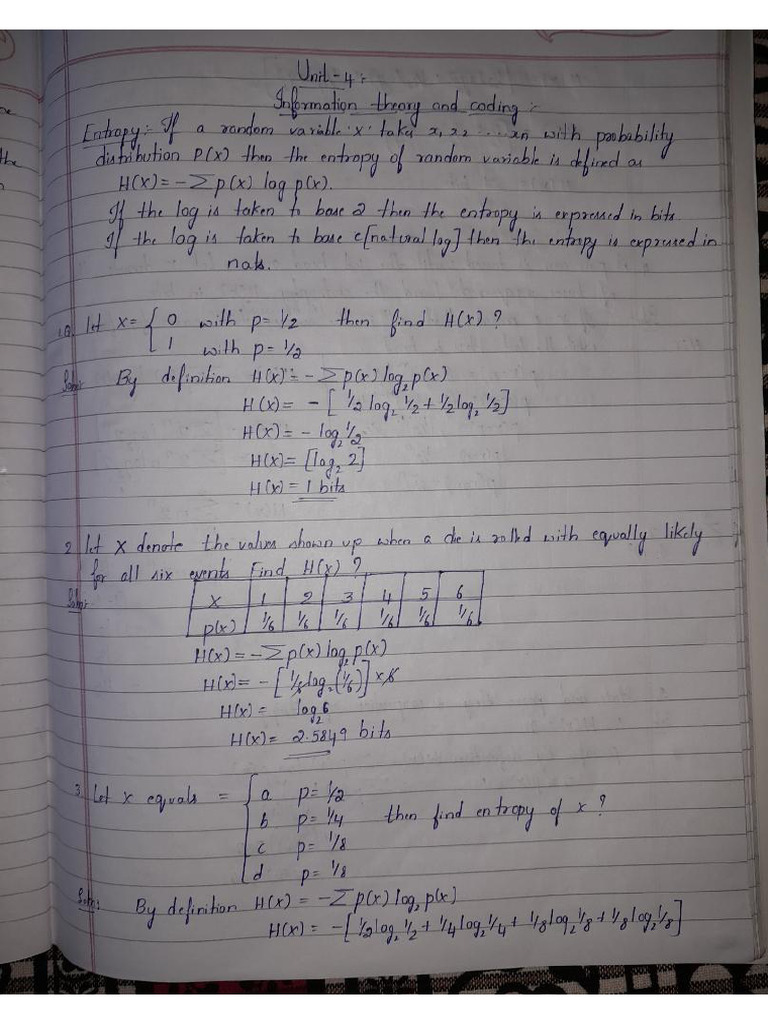 Unit-4:
Information theory and coding:-
Entropy:- If a random variable 'x' takes x1, x2 ... xn with probability
distribution P(x) then the entropy of random variable is defined as
H(x) = -Σ p(x) log p(x).
If the log is taken to base 2 then the entropy is expressed in bits
If the log is taken to base e [natural log] then the entropy is expressed in
nats.
1Q. let x = { 0 with p = 1/2 then find H(x) ?
1 with p = 1/2
Soln: By definition H(x) = -Σ p(x) log₂ p(x)
H(x) = -[1/2 log₂ 1/2 + 1/2 log₂ 1/2]
H(x) = -log₂ 1/2
H(x) = [log₂ 2]
H(x) = 1 bits
2 let x denote the values shown up when a die is rolled with equally likely
for all six events Find H(x) ?
Soln: x 1 2 3 4 5 6
p(x) 1/6 1/6 1/6 1/6 1/6 1/6
H(x) = -Σ p(x) log₂ p(x)
H(x) = -[1/6 log₂ (1/6)] × 6
H(x) = log₂ 6
H(x) = 2.5849 bits
3. Let x equals = { a p = 1/2
b p = 1/4 then find entropy of x ?
c p = 1/8
d p = 1/8
Soln: By definition H(x) = -Σ p(x) log₂ p(x)
H(x) = -[1/2 log₂ 1/2 + 1/4 log₂ 1/4 + 1/8 log₂ 1/8 + 1/8 log₂ 1/8]